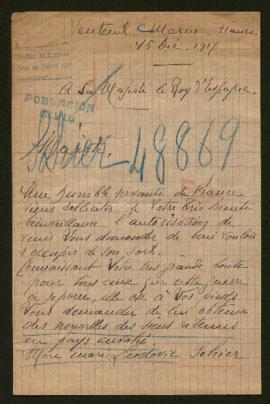 Venteuil Marne France
15 Dec. 1917
A Sa Majesté le Roy d'Espagne.
POBLACION
CIVIL
Sohier 48869
Majesté.
Une humble servante de France
viens solliciter de Votre très haute
bienveillance l'autorisation de
venir vous demander de bien vouloir
s'occuper de son sort.
Connaissant Votre très grande bonté
pour tous ceux que cette guerre
a séparée, elle ose à Vos pieds
Vous demander de lui obtenir
des nouvelles des siens retenus
en pays envahi.
Mon mari Ludovic Sohier